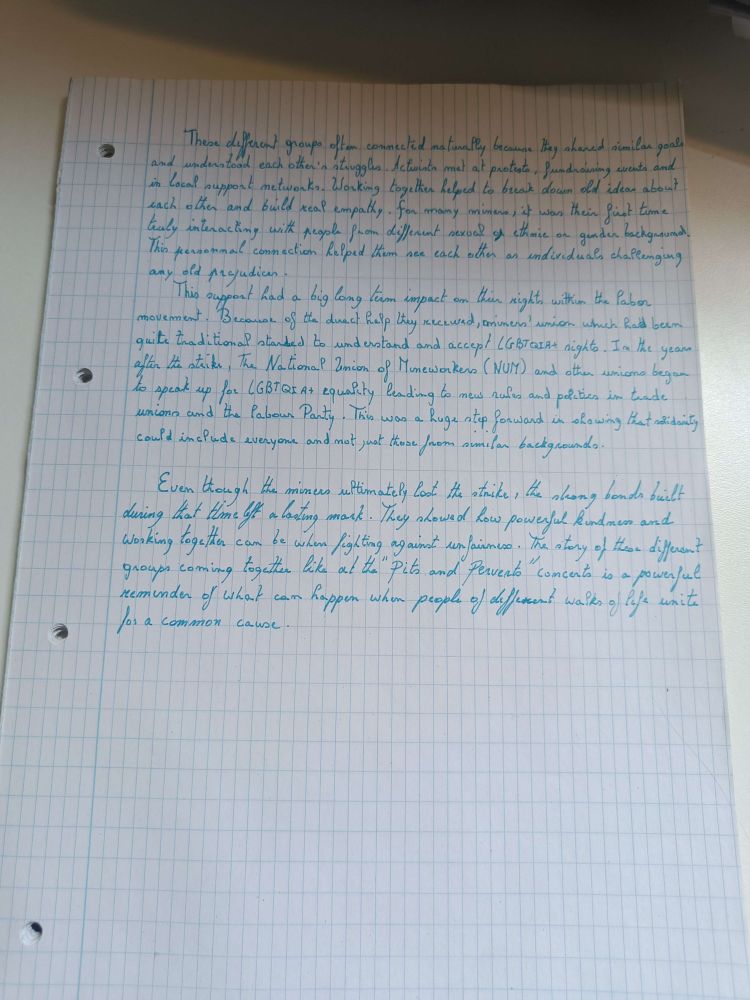 These different groups often connected naturally because they shared similar goals
and understood each other's struggles. Activists met at protests, fundraising events and
in local support networks. Working together helped to break down old ideas about
each other and build real empathy. For many miners, it was their first time
truly interacting with people from different sexual or ethnic or gender backgrounds.
This personnal connection helped them see each other as individuals challenging
any old prejudices.
This support had a big long term impact on their rights within the labor
movement. Because of the direct help they received, miners' union which had been
quite traditional started to understand and accept LGBTQIA+ rights. In the years
after the strike, The National Union of Mineworkers (NUM) and other unions began
to speak up for LGBTQIA+ equality leading to new rules and politics in trade
unions and the Labour Party. This was a huge step forward in showing that solidarity
could include everyone and not just those from similar backgrounds.
Even though the miners ultimately lost the strike, the strong bonds built
during that time left a lasting mark. They showed how powerful kindness and
working together can be when fighting against unfairness. The story of these different
groups coming together like at the "Pits and Perverts" concerts is a powerful
reminder of what can happen when people of different walks of life unite
for a common cause.